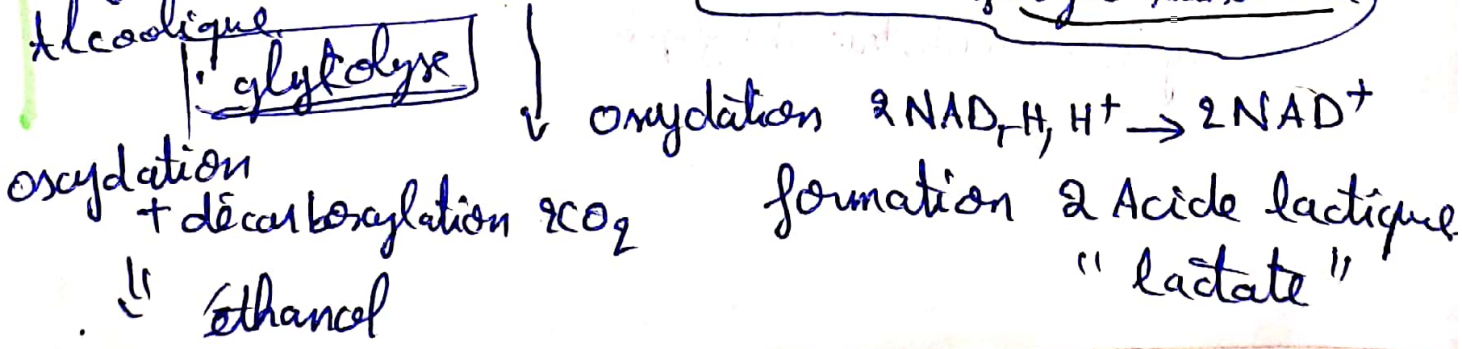 Alcoolique
glykolyse
oxydation 2NAD,H, H+ → 2NAD+
oxydation
+ décarboxylation 2CO2
formation 2 Acide lactique
" lactate "
Ethanol